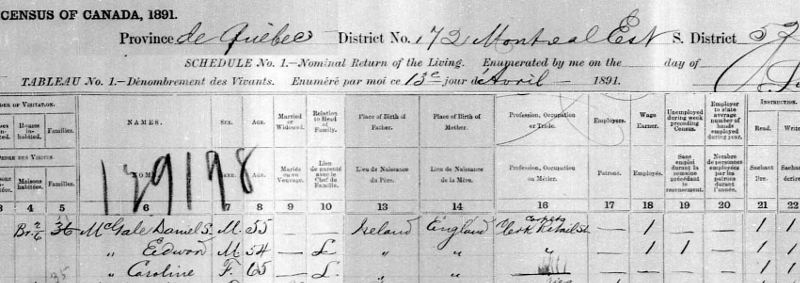 CENSUS OF CANADA, 1891.
Province de Québec District No. 172 Montreal Est S. District 57
SCHEDULE No. 1.—Nominal Return of the Living. Enumerated by me on the day of
TABLEAU No. 1.—Dénombrement des Vivants. Enuméré par moi ce 13e jour d'Avril 1891.
ORDER OF VISITATION. NAMES. SEX. AGE. Married or Widowed. Relation to Head of Family. Place of Birth of Father. Place of Birth of Mother. Profession, Occupation or Trade. Employers. Wage Earner. Unemployed during week preceding Census. Employer to state average number of hands employed during year. INSTRUCTION.
Houses in-habited. Families. Read. Write
ORDRE DES VISITES. NOMS. SEXE. AGE. Mariés ou en Veuvage. Lien de parenté avec le Chef de Famille. Lieu de Naissance du Père. Lieu de Naissance de la Mère. Profession, Occupation ou Métier. Patrons. Employés. Sans emploi durant la semaine précédant le recensement. Nombre de personnes employées par le patron durant l'année. Sachant lire. Sachant écrire
Maisons habitées. Familles.
139198
3 4 5 6 7 8 9 10 13 14 16 17 18 19 20 21 22
36 McGale Daniel S. M. 55 — — Ireland England Carpets Clerk Retail St — 1 — — 1 1
" Edward M 54 — L. " " — 1 1 — 1 1
" Caroline F. 65 — L. " " — — — — 1 1
35